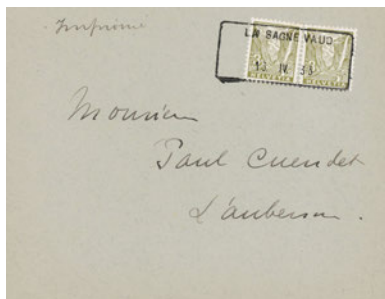 Imprimé
LA SAGNE VAUD
13 IV 35
HELVETIA HELVETIA
Monsieur
Paul Cuendet
L'auberson.